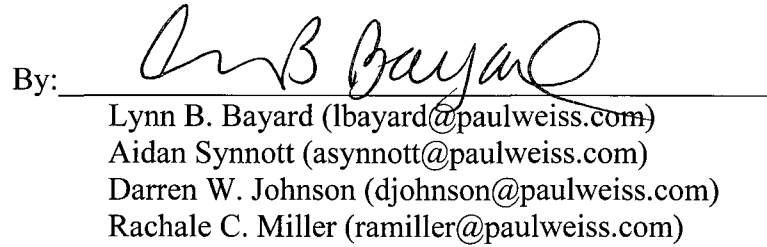 By: Lynn B Bayard
Lynn B. Bayard (lbayard@paulweiss.com)
Aidan Synnott (asynnott@paulweiss.com)
Darren W. Johnson (djohnson@paulweiss.com)
Rachale C. Miller (ramiller@paulweiss.com)